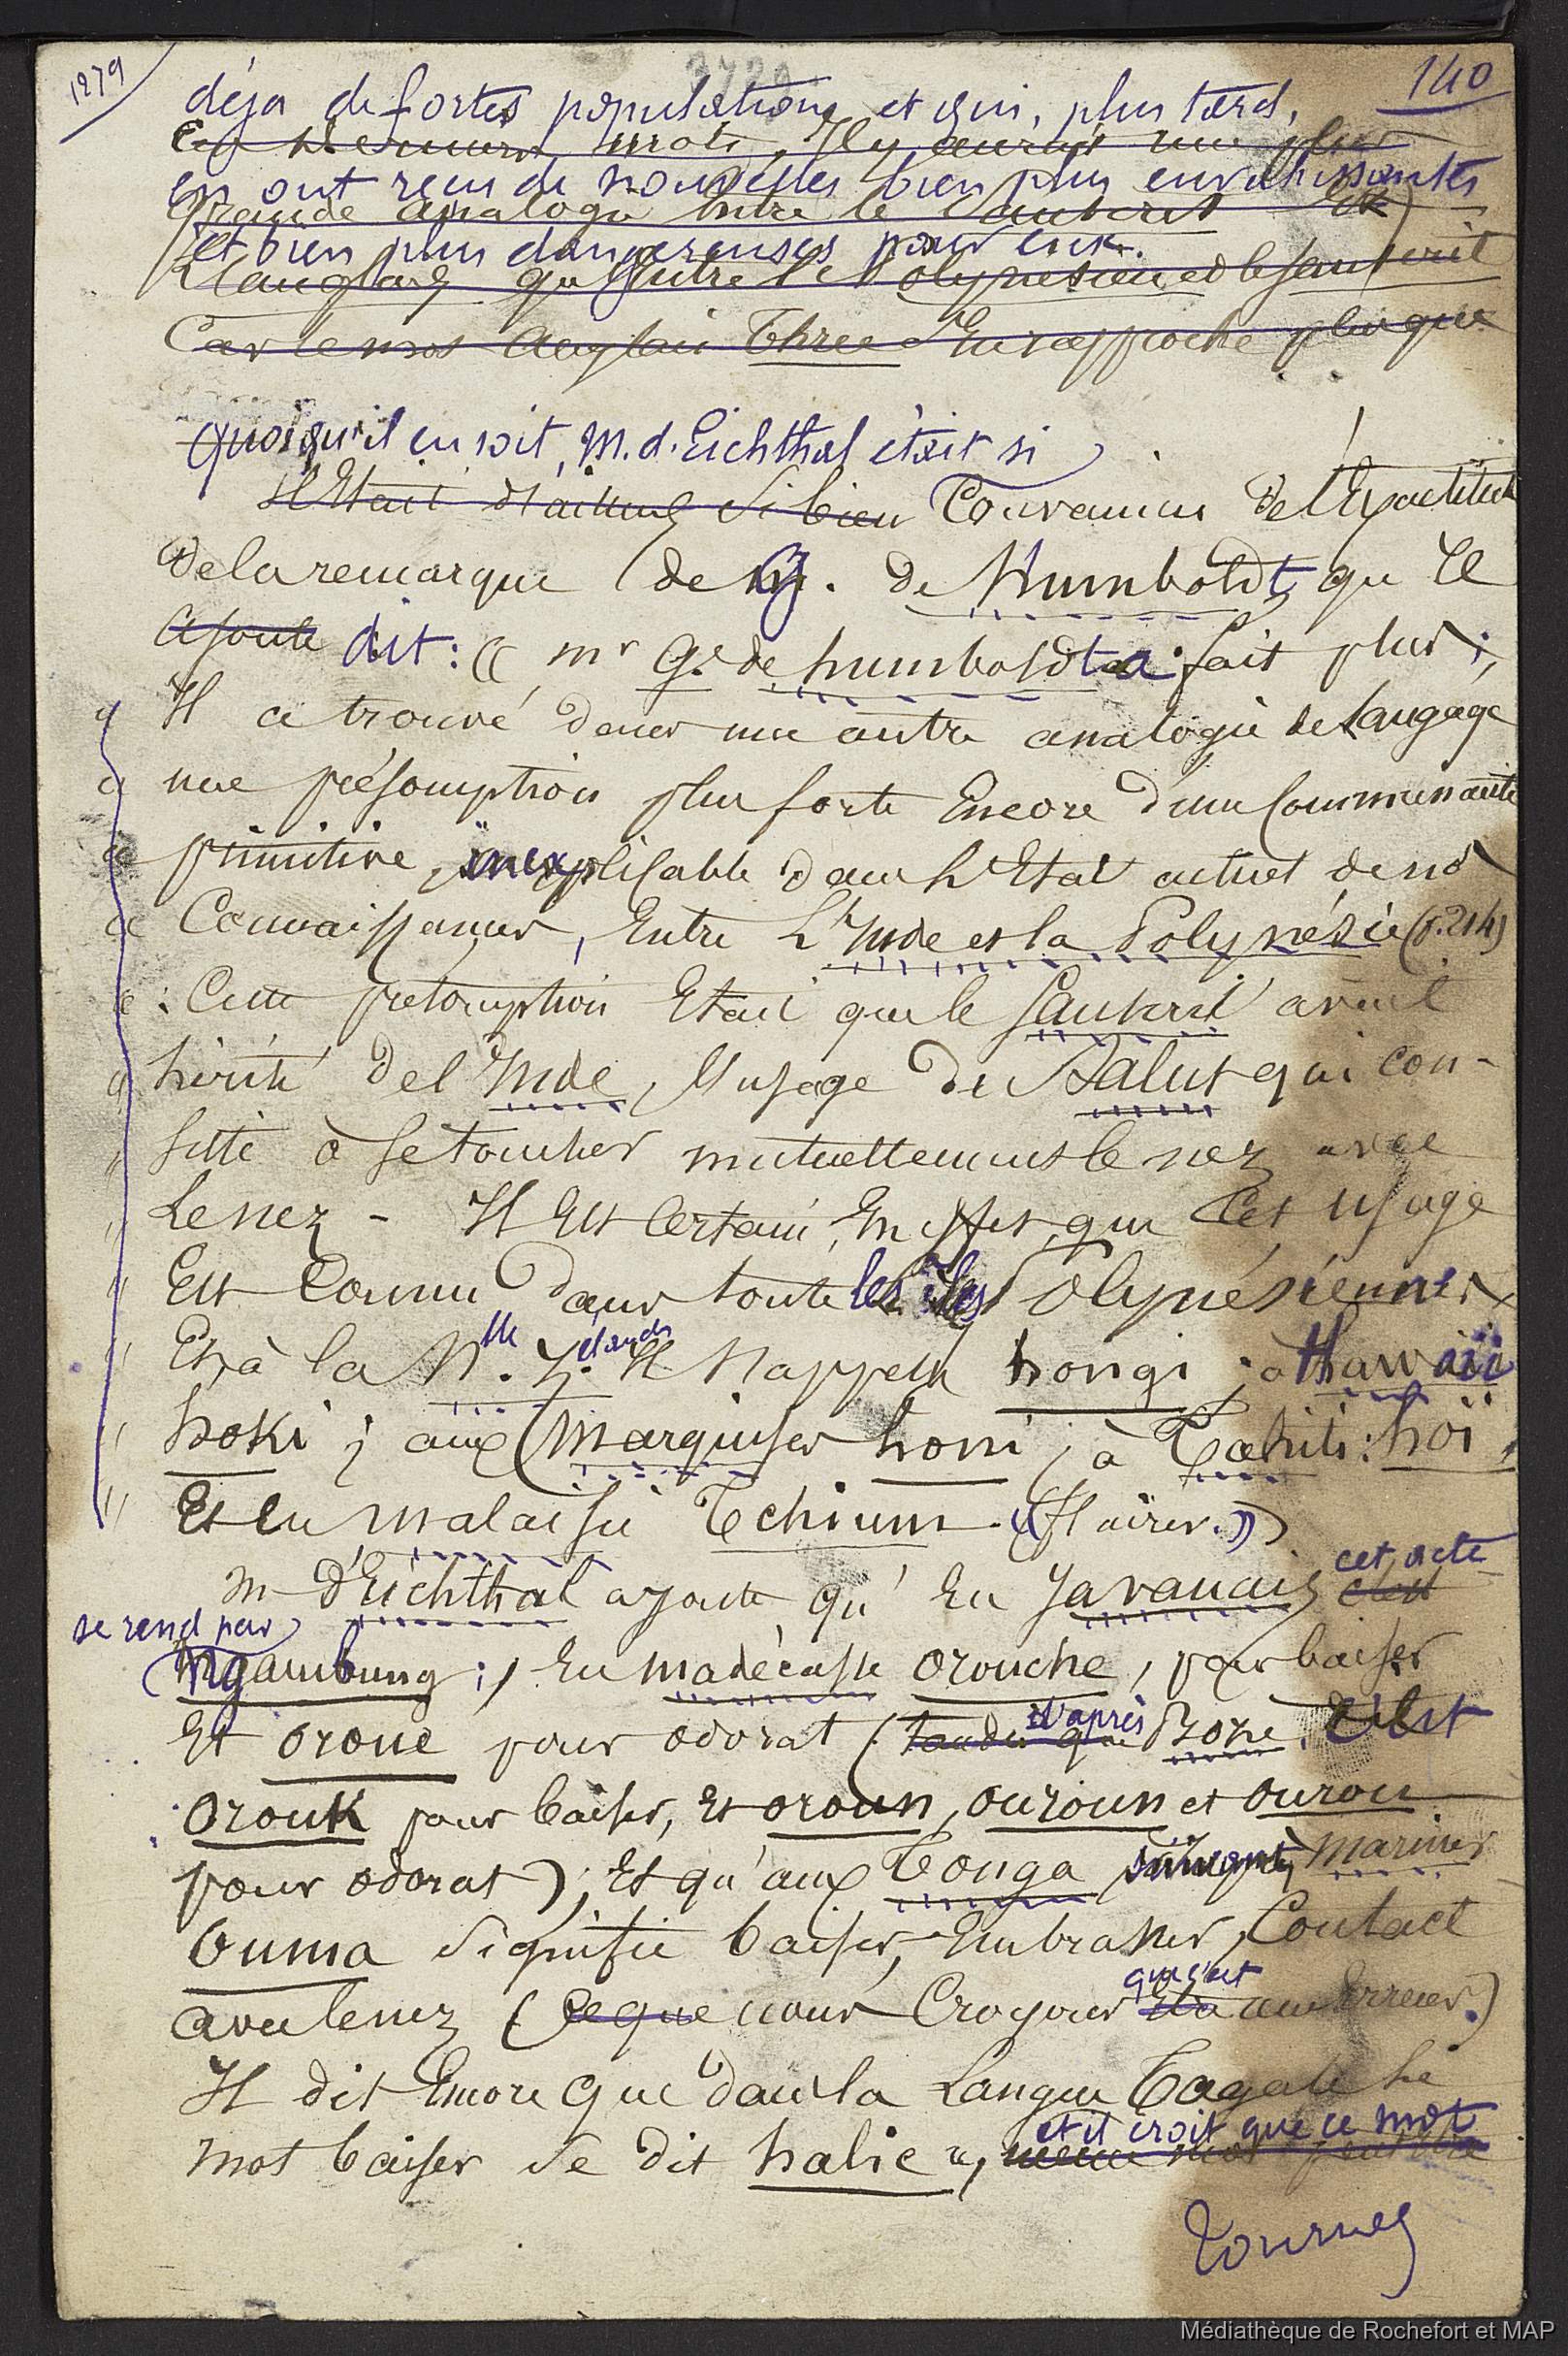 1279
140
déja de fortes populations et qui, plus tard,
mots, Il y aurait une plus
en ont reçu de nouvelles bien plus envahissantes
grande analogie entre le Sanscrit Et
et bien plus dangereuses pour eux.
L'anglais qu'Entre le Polynésien et le Sanscrit
Car le mot Anglais Three s'En rapproche plus que
quoiqu'il en soit, M. d. Eichthal était si
Il Etait d'ailleurs si bien Convaincu de l'Exactitude
De la remarque de G. de Humboldt, que Il
ajoute dit : « mr G. de humboldt a fait plus ;
« Il a trouvé dans une autre analogie de langage
« une présomption plus forte Encore d'une Communauté
« primitive, inexplicable dans l'Etat actuel de nos
« Connaissances, Entre L'Inde et la Polynésie (p. 214)
« : Cette présomption Etait que le Sanscrit avait
« hérité de l'Inde, l'usage du Salut qui con-
" siste à se toucher mutuellement le nez avec
" Le nez - Il Est Certain, En effet, que Cet usage
" Est Connu dans toute les îles Polynésiennes
" Et à la N.lle Z.élande Il s'appelle hongi ; à Hawaii
" hoki ; aux Marquises honi ; à Tahiti : hoï ,
" Et en malaisie Tchium. (flairer.)
cet acte
m d'Eichthal ajoute qu'En Javanais c'est
se rend par
ngambung ; En madécasse orouche, pour baiser
Et oroue pour odorat (tandis que d'après Rozé. C'est
orouk pour baiser, Et oroun, ouroun et ourou
pour odorat) ; Et qu'aux Tonga suivant, Mariner
Ouma signifie baiser, Embrasser, Contact
que c'est
avec le nez (Ce que nous Croyons une Erreur.)
Il dit Encore que dans la Langue Tagale le
et il croit que ce mot
mot baiser se dit halic ",
Tournez
Médiathèque de Rochefort et MAP